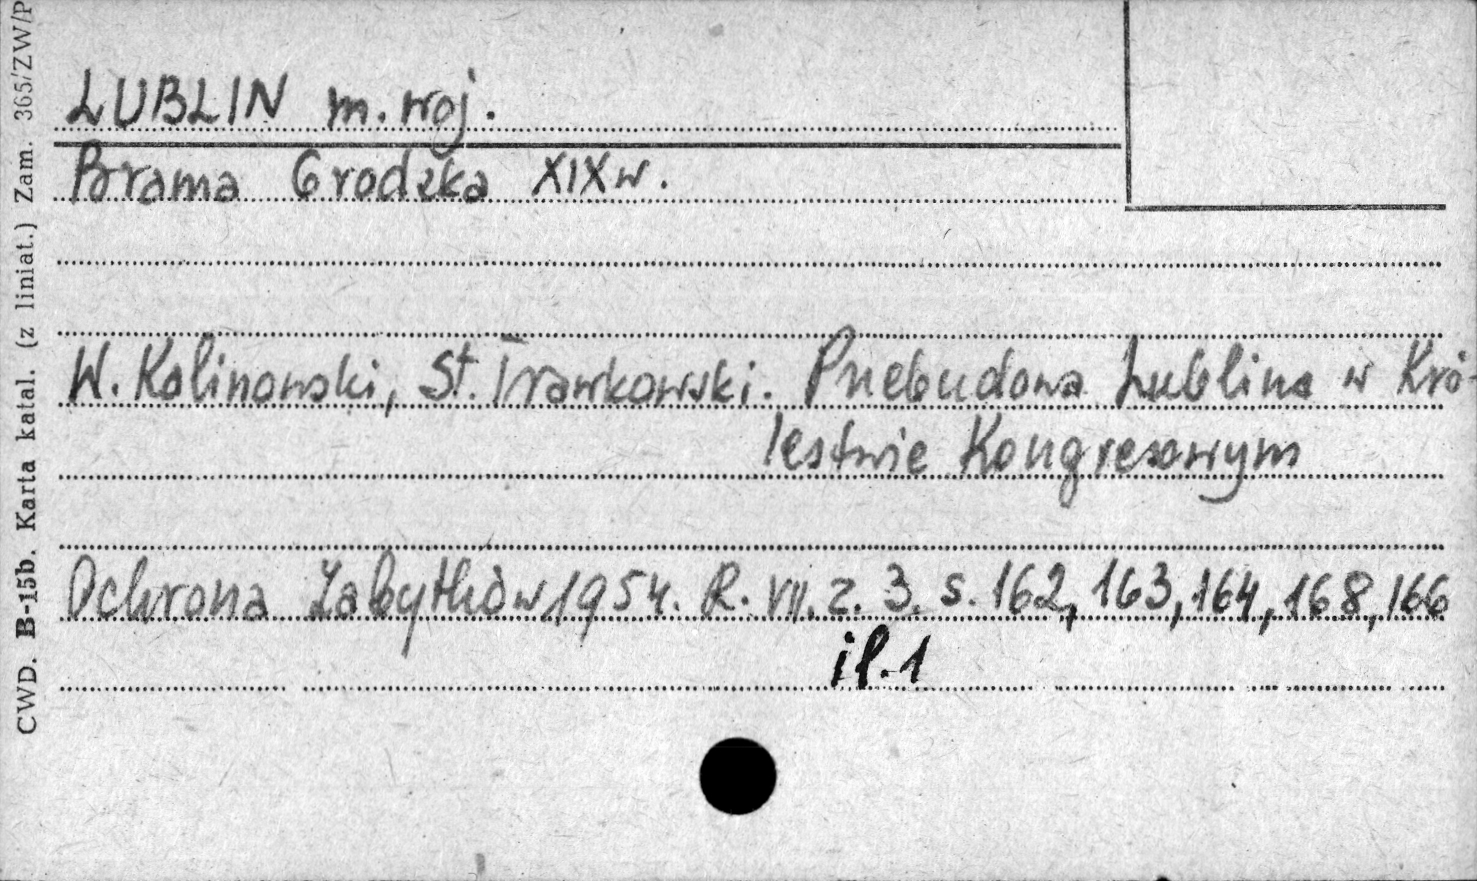 LUBLIN m. woj.
Brama Grodzka XIX w.
W. Kalinowski, St. Trawkowski. Przebudowa Lublina w Kró-
lestwie Kongresowym
Ochrona Zabytków 1954. R. VII. z. 3. s. 162, 163, 164, 168, 166
il. 1
CWD. B-15b. Karta katal. (z liniat.) Zam. 365/ZW/P